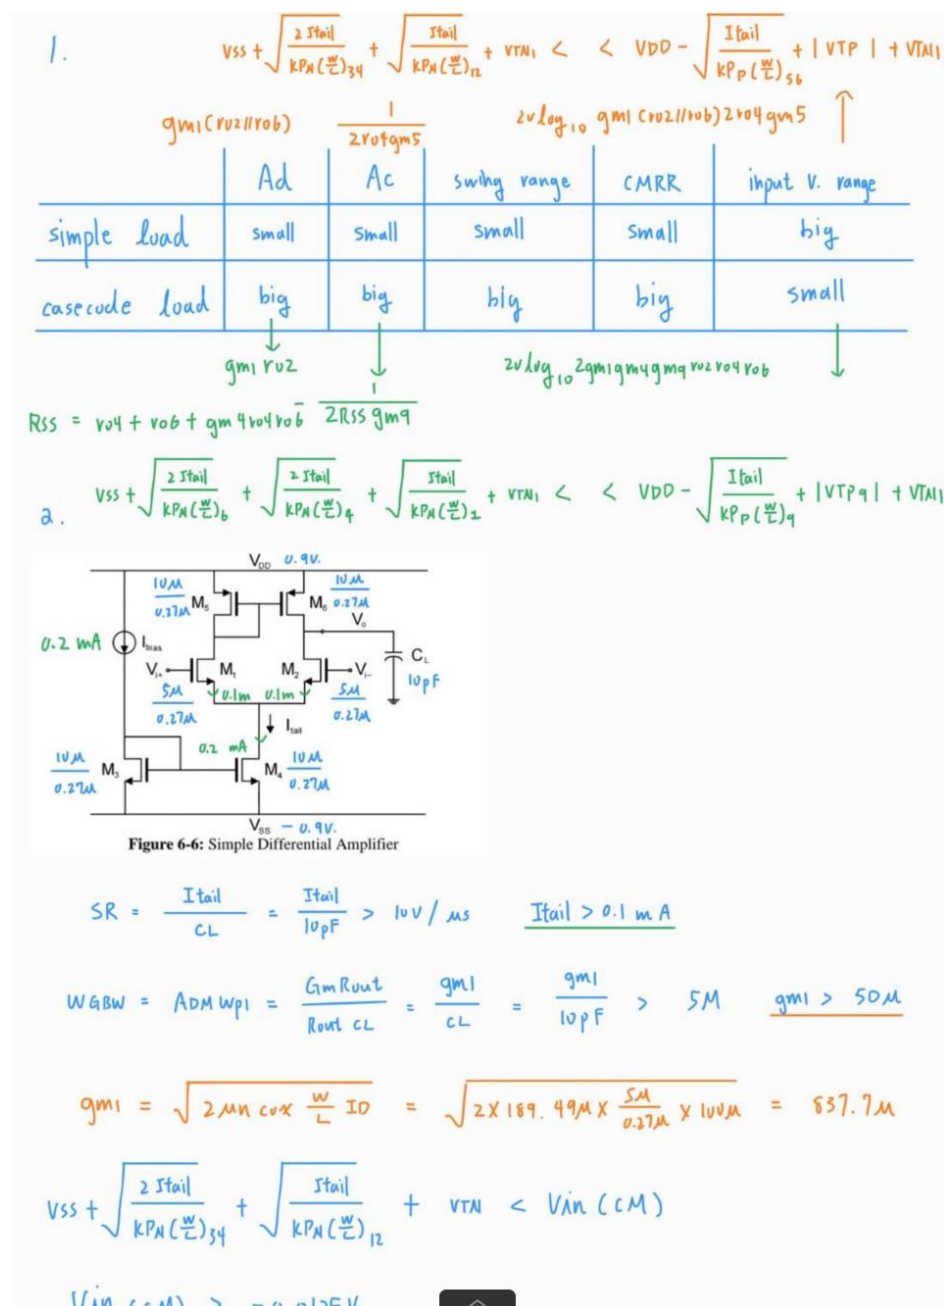 1. VSS + √(2 Itail / KPN(W/L)34) + √(Itail / KPN(W/L)12) + VTN1 < < VDD - √(Itail / KPP(W/L)56) + |VTP| + VTN1
gm1(ro2//ro6) 1 / 2ro4gm5 20log10 gm1(ro2//ro6)2ro4gm5 ↑
Ad Ac swing range CMRR input V. range
simple load small small small small big
casecode load big big big big small
gm1 ro2 1 / 2Rss gm9 20log10 2gm1gm4gm9 ro2 ro4 ro6
RSS = ro4 + ro6 + gm4ro4ro6
2. VSS + √(2 Itail / KPN(W/L)6) + √(2 Itail / KPN(W/L)4) + √(Itail / KPN(W/L)2) + VTN1 < < VDD - √(Itail / KPP(W/L)9) + |VTP9| + VTN1
VDD 0.9V.
10M / 0.27M M5 M6 10M / 0.27M
Vo
0.2 mA Ibias
Vi+ M1 M2 Vi- CL
10pF
5M / 0.27M 0.1m 0.1m 5M / 0.27M
Itail
0.2 mA
10M / 0.27M M3 M4 10M / 0.27M
VSS - 0.9V.
Figure 6-6: Simple Differential Amplifier
SR = Itail / CL = Itail / 10pF > 10V/μs Itail > 0.1 mA
WGBW = ADM Wp1 = GmRout / Rout CL = gm1 / CL = gm1 / 10pF > 5M gm1 > 50M
gm1 = √(2 μn cox W/L ID) = √(2 × 189.49M × 5M/0.27M × 100M) = 837.7M
VSS + √(2 Itail / KPN(W/L)34) + √(Itail / KPN(W/L)12) + VTN < Vin(CM)